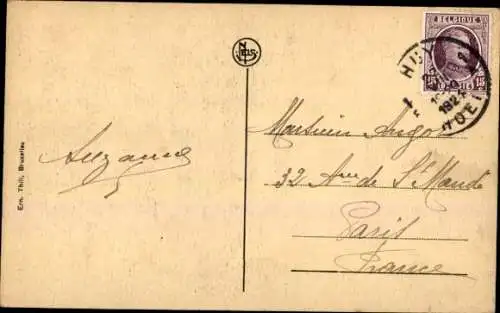 Ern. Thill, Bruxelles
NELS
Suzanne
BELGIQUE
15 15
1924
Monsieur Angot
32 Ave de St Mandé
Paris
France